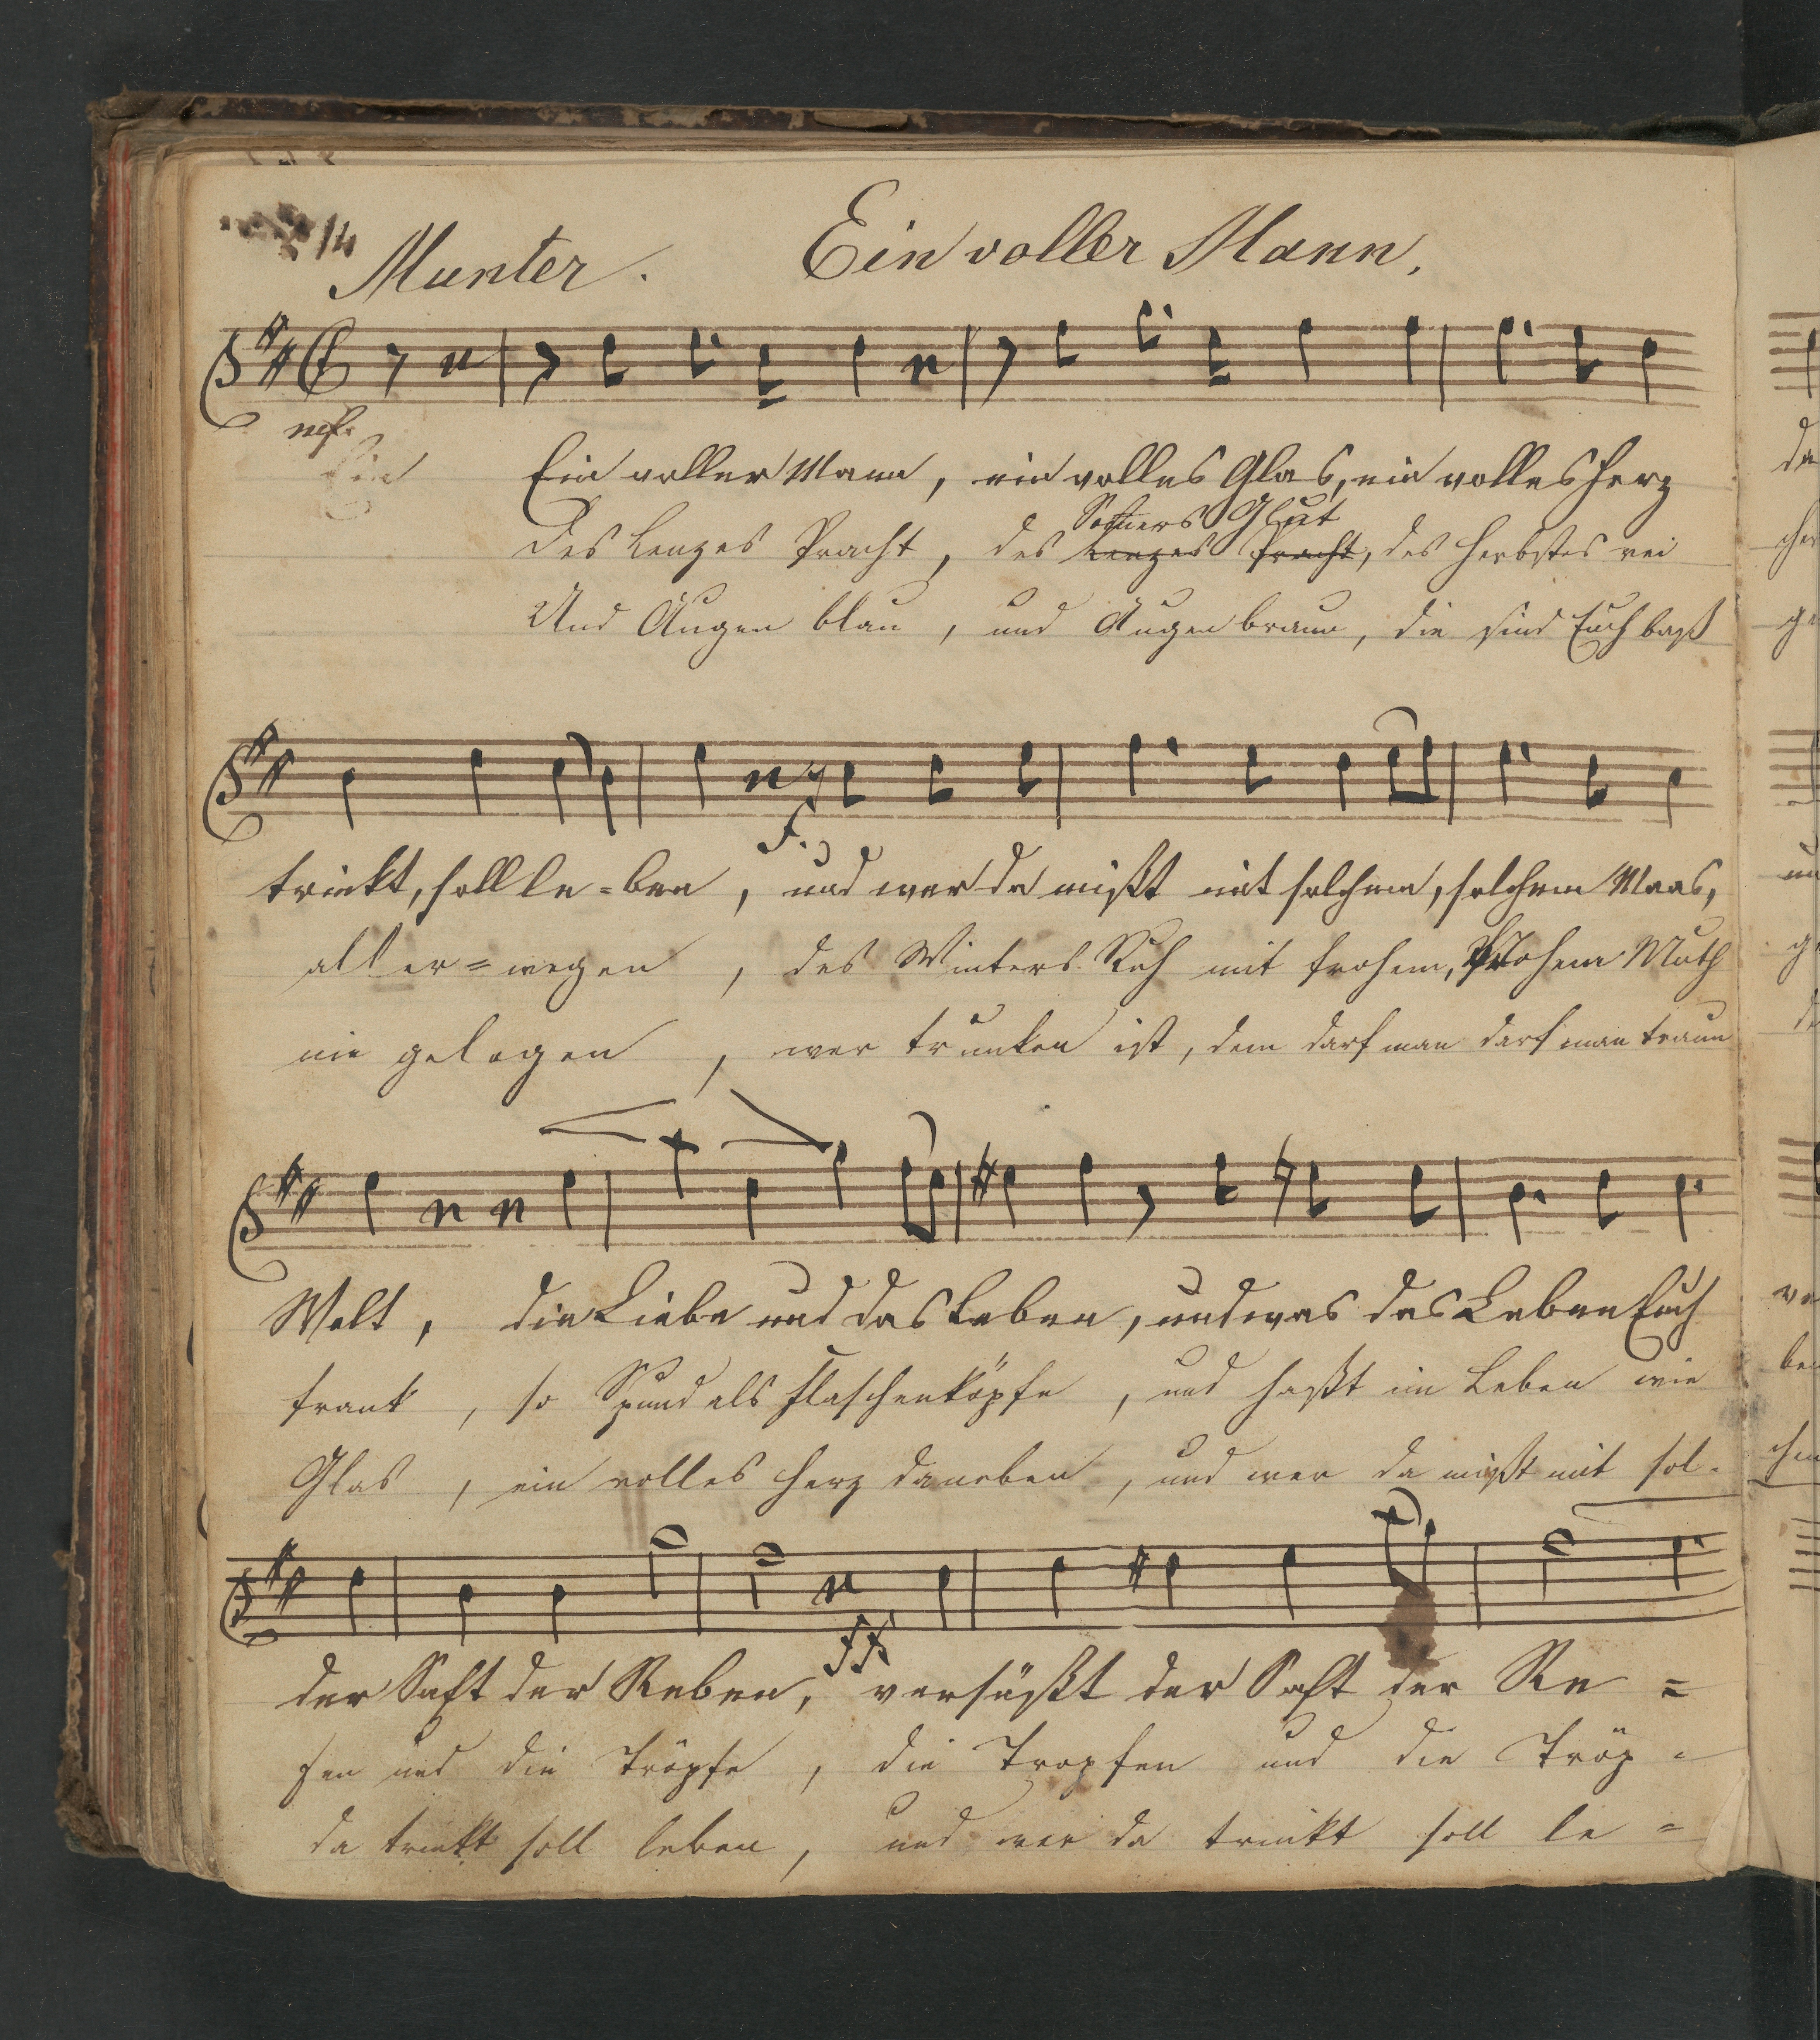 14
Munter. Ein voller Mann.
mf.
Ein Ein voller Mann, ein volles Glas, ein volles Herz
Somers Glut
Des Lenzes Pracht, des Lenzes Pracht, des Herbstes rei
Und Augen blau, und Augen braun, die sind Euch baß
f.
trinkt, soll le-ben, und wer da mißt mit solchem, solchem Maas,
aller-wegen, des Winters Ruh mit frohem, frohem Muth
nie gelogen, wer trunken ist, dem darf man darf man traun
Welt, die Liebe und das Leben, und was das Leben Euch
frank, so Spund als Flaschenköpfe, und haßt im Leben wie
Glas, ein volles Herz daneben, und wer da mißt mit sol-
ff
der Saft der Reben, versüßt der Saft der Re =
fen und die Tröpfe, die Tropfen und die Tröp =
da trinkt soll leben, und wer da trinkt soll le =